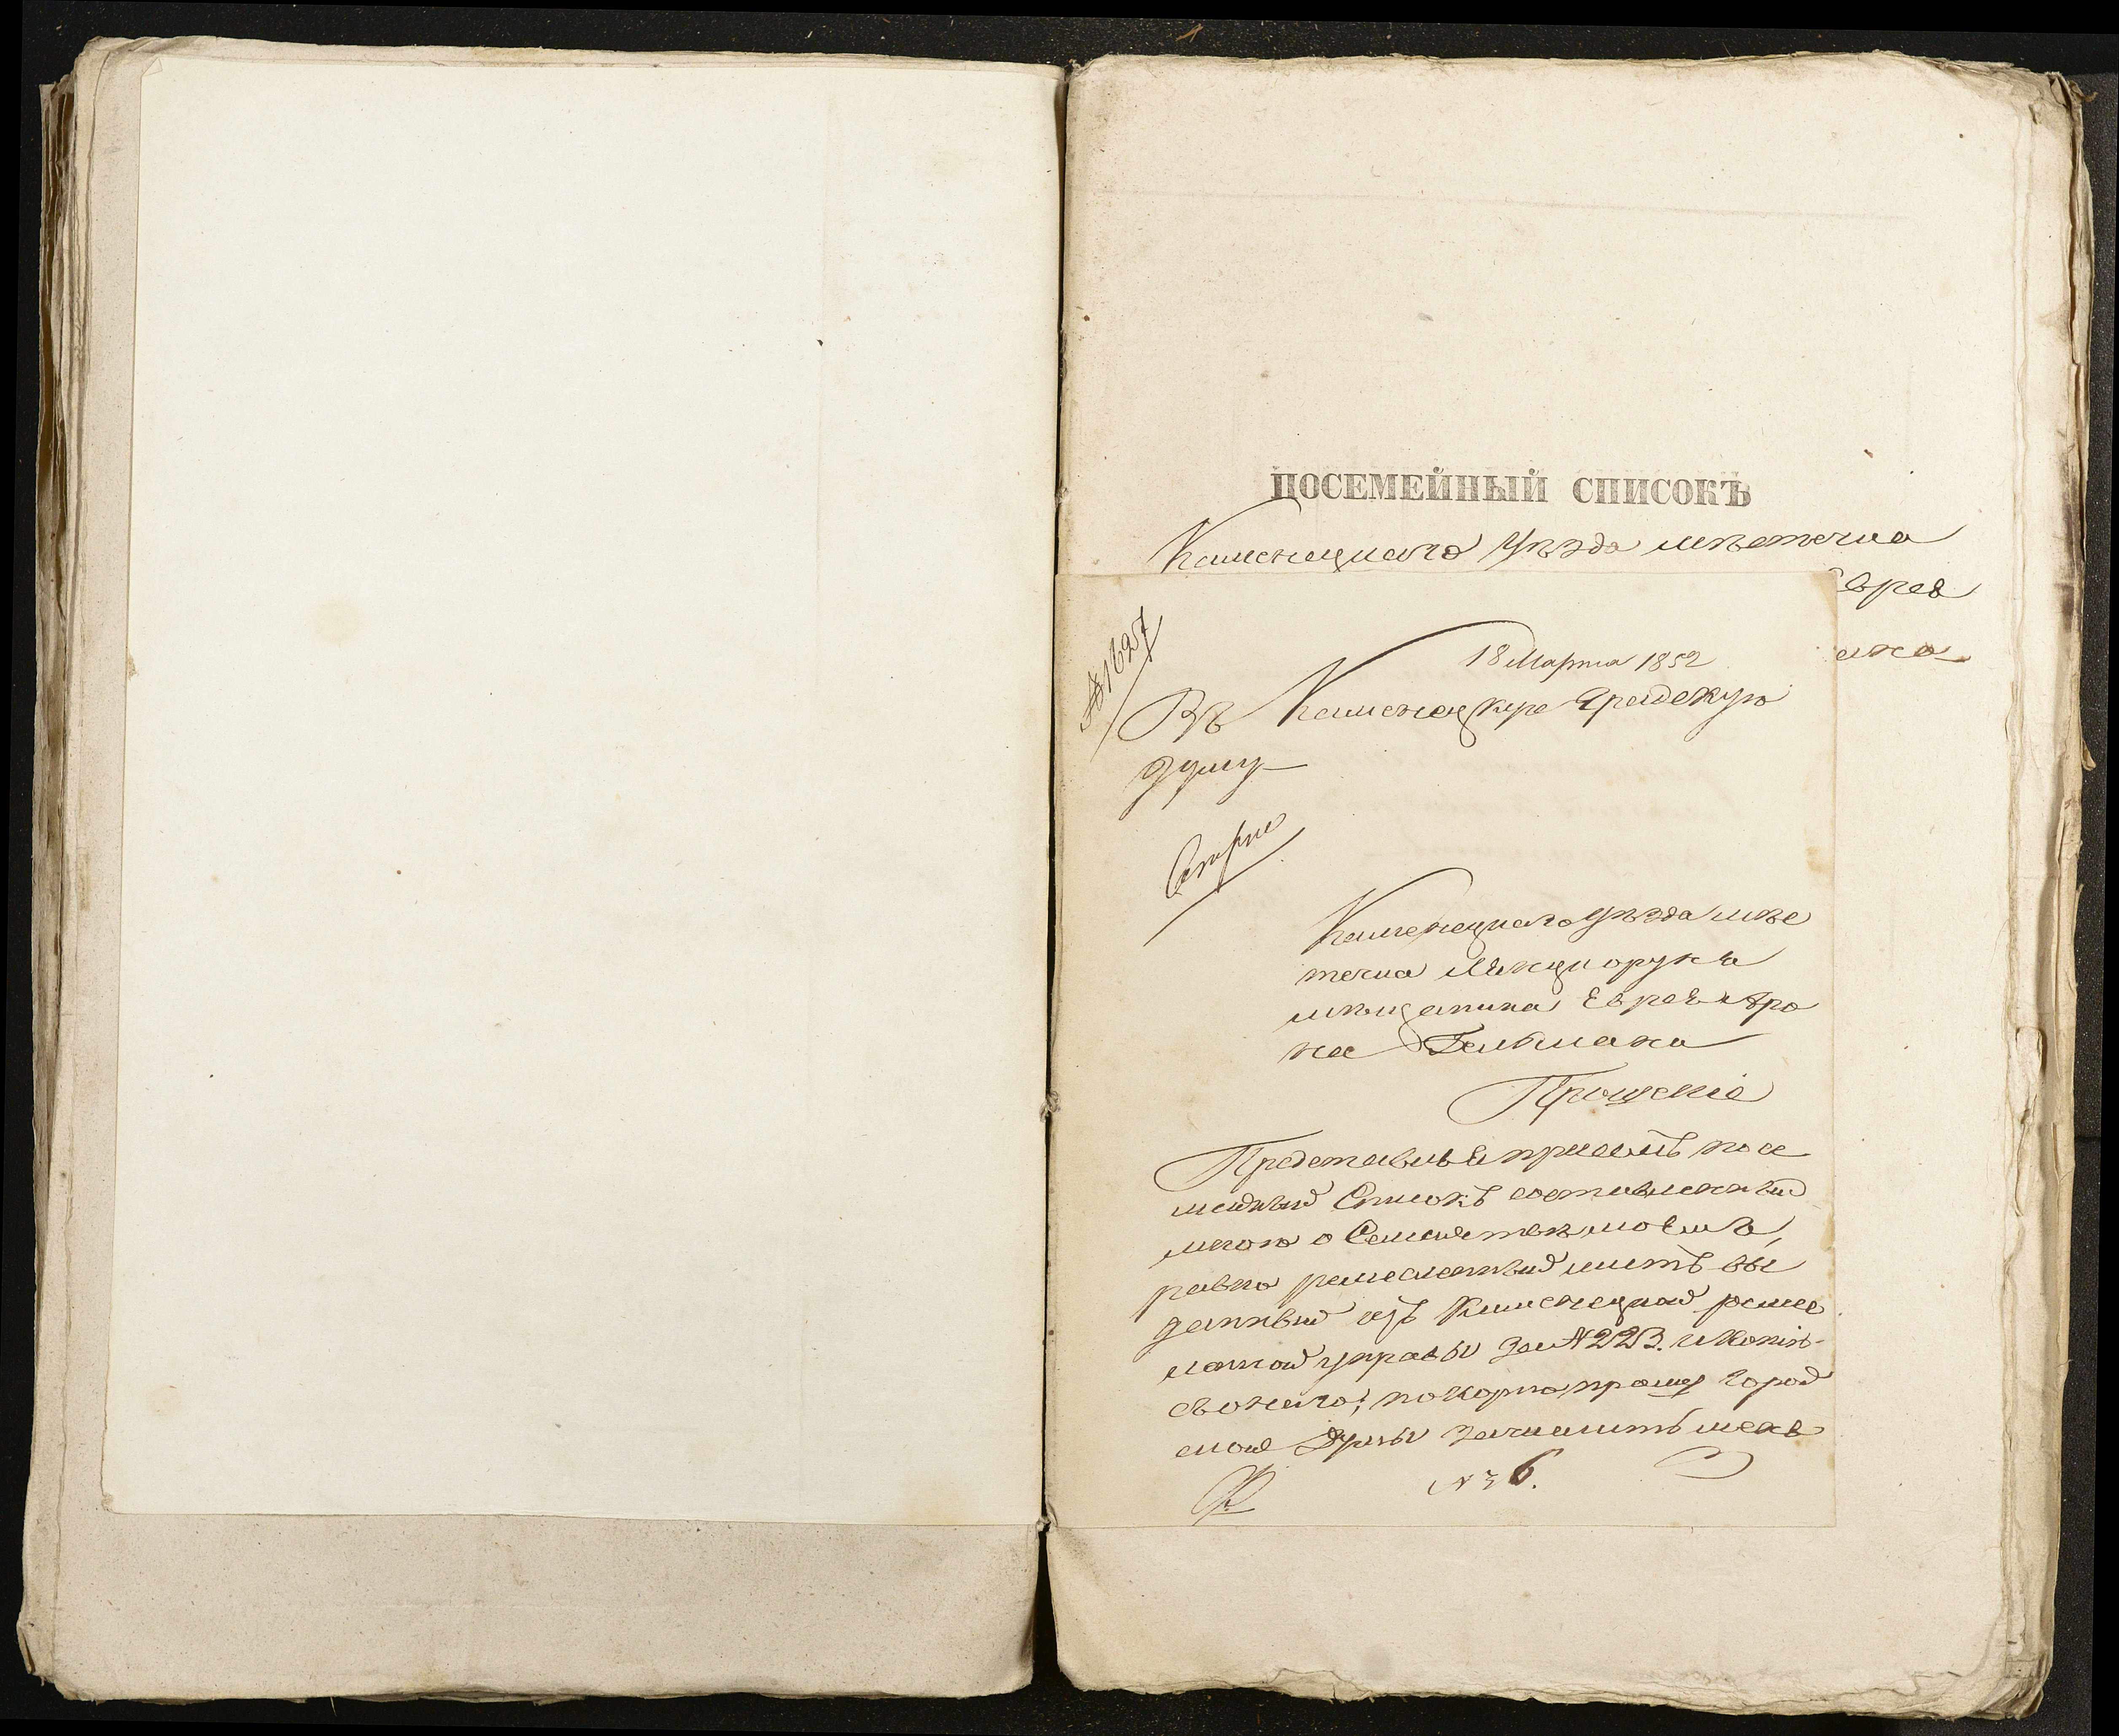 ПОСЕМЕЙНЫЙ СПИСОКЪ
Каменецкаго уѣзда мѣстечка
Еврея
18 Марта 1852
Въ Каменецкую Градскую
Думу
Каменецкаго уѣзда мѣс
течка
мѣщанина Еврея Аро
на Гельмана
Прошеніе
Представляя присемъ посе
мейный Списокъ составленный
мною о Семействѣ моемъ,
равно ремесленный листъ вы
данный изъ Каменецкой ремес
ленной управы за № 223. и копію
съ онаго; покорно прошу Город
ской Думы зачислить меня
№ 6.